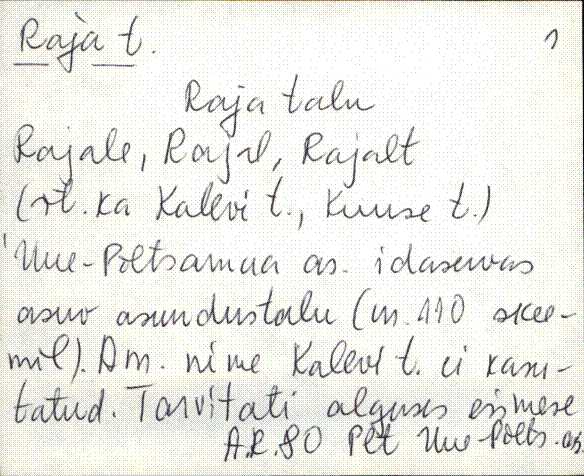 Raja t. 1
Raja talu
Rajale, Rajal, Rajalt
(vt. ka Kalevi t., Kuuse t.)
'Uue-Põltsamaa as. idaservas
asuv asundustalu (nr. 110 skee-
mil). Am. nime Kalevi t. ei kasu-
tatud. Tarvitati alguses esimese
A.R. 80 Plt Uue-Põlts. as.